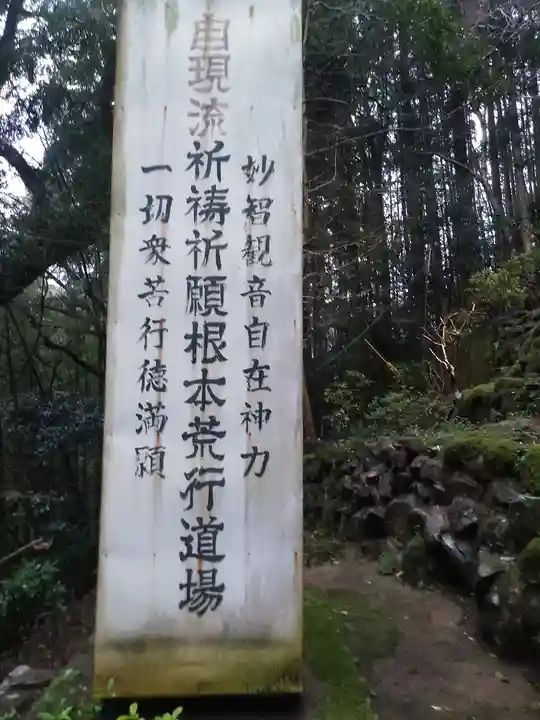 妙智観音自在神力
由現流祈禱祈願根本荒行道場
一切衆苦行徳満願